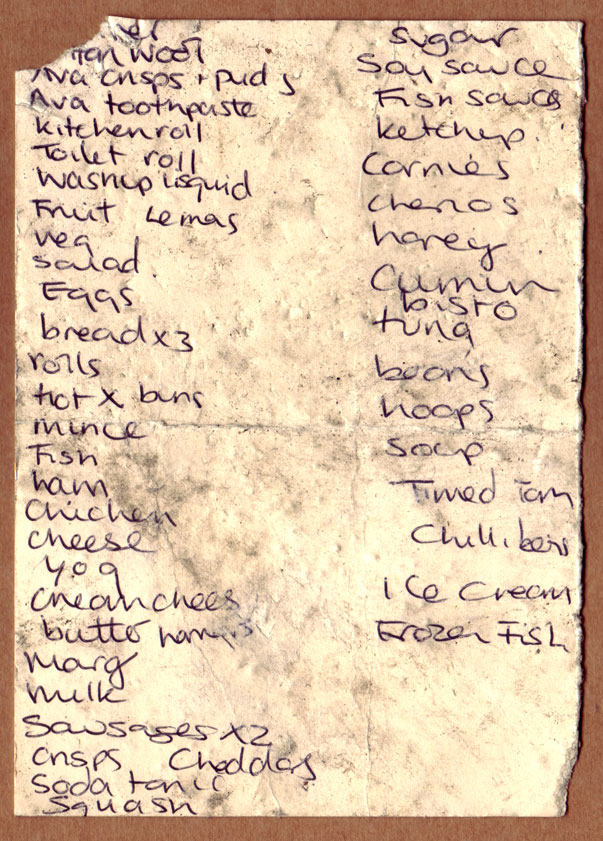 wool
Ava crisps + puds
Ava toothpaste
kitchen roll
Toilet roll
washup liquid
Fruit Lemas
veg
salad
Eggs
bread x3
rolls
hot x buns
mince
Fish
ham
Chicken
cheese
yog
creamchees
butter
marg
milk
Sausages x2
crisps Cheddars
soda tonic
squash
sugar
Soy sauce
Fish sauce
ketchup
Cornies
cherios
honey
Cumin
bisto
tuna
beans
hoops
soup
Tinned Tom
Chilli bens
Ice Cream
Frozen Fish